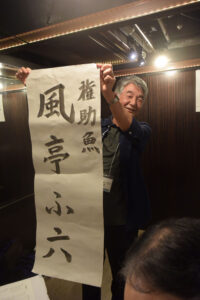 権助魚
風亭ふ六